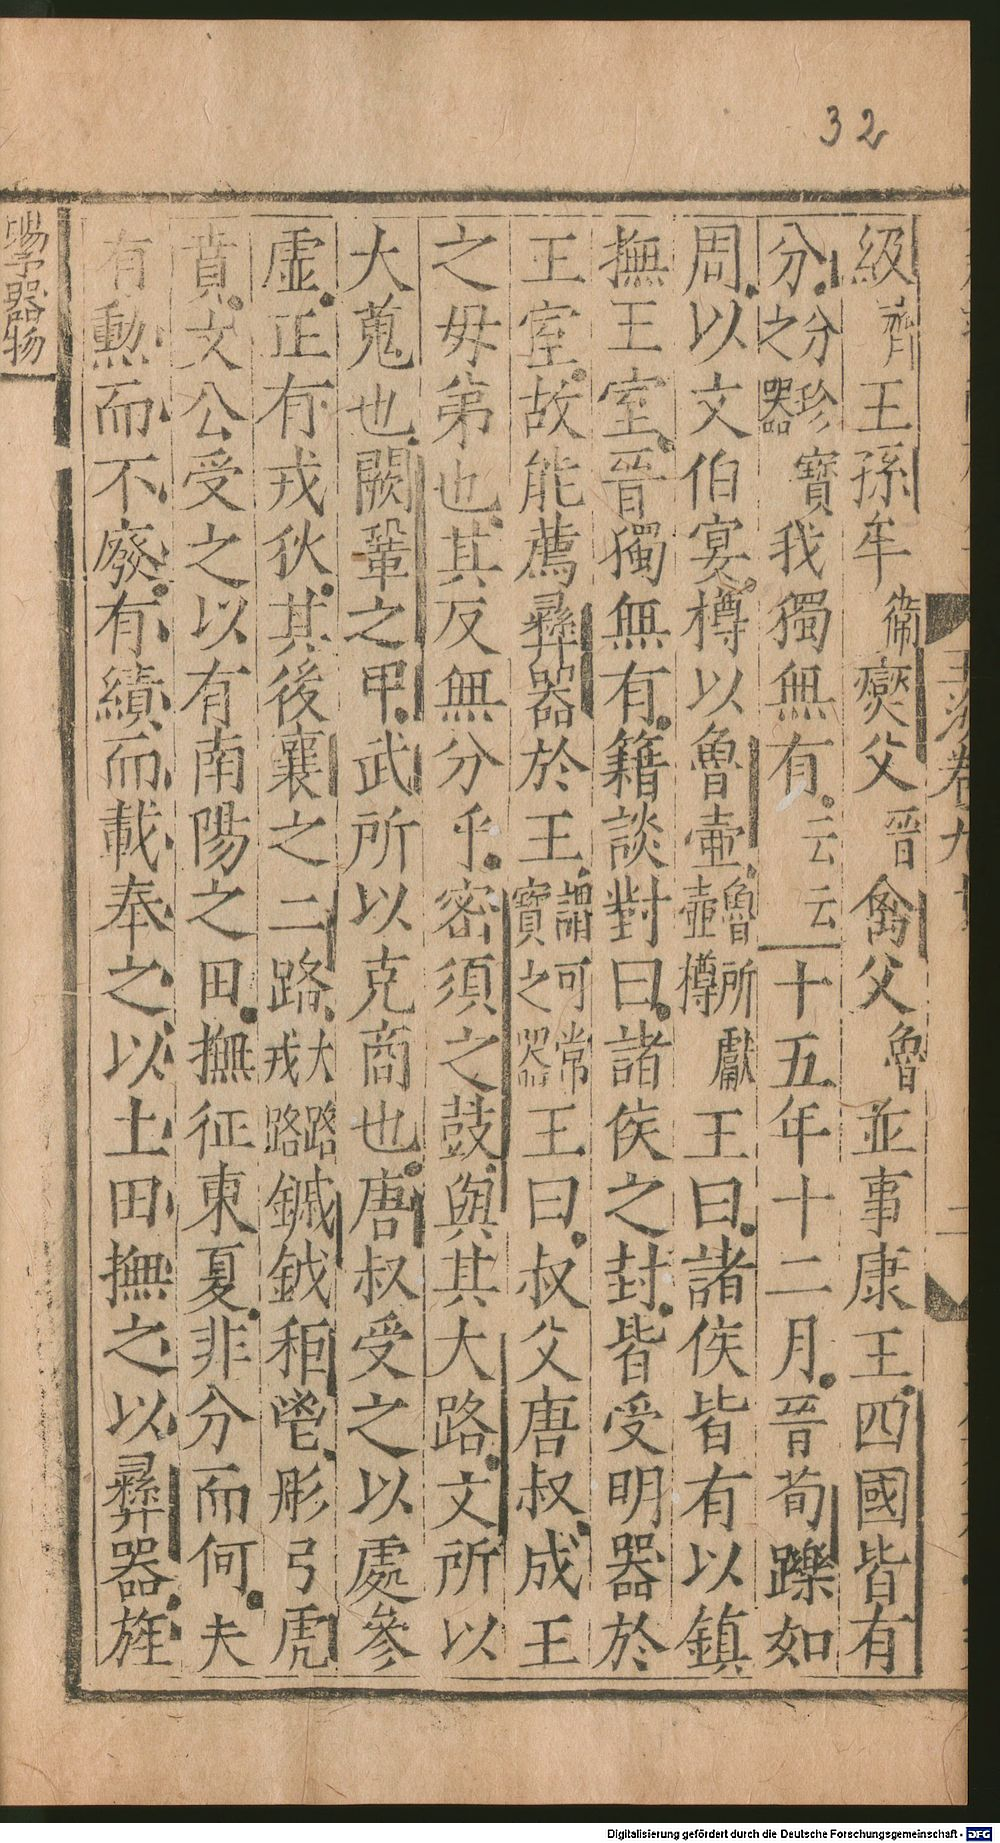 32
級齊王孫牟衛燮父晉禽父魯並事康王四國皆有
分分珍寶之器我獨無有云云十五年十二月晉荀躒如
周以文伯宴樽以魯壷魯所獻壷樽王曰諸侯皆有以鎮
撫王室晉獨無有籍談對曰諸侯之封皆受明器於
王室故能薦彞器於王謂可常寶之器王曰叔父唐叔成王
之毋弟也其反無分乎密須之鼓與其大路文所以
大蒐也闕鞏之甲武所以克商也唐叔受之以處參
虛正有戎狄其後襄之二路大路戎路鏚鉞秬鬯彤弓虎
賁文公受之以有南陽之田撫征東夏非分而何夫
有勳而不廢有績而載奉之以土田撫之以彞器旌
賜予器物
Digitalisierung gefördert durch die Deutsche Forschungsgemeinschaft - DFG